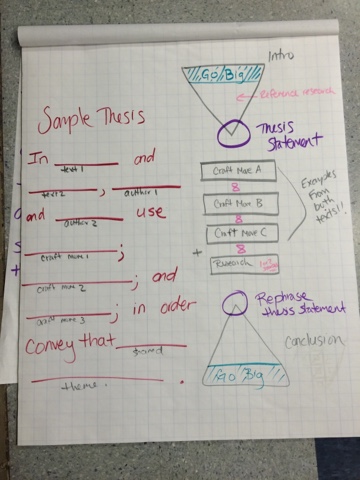 Sample Thesis
In ______ and
text 1
______, ______
text 2 author 1
and ______ use
author 2
______;
craft move 1
______; and
craft move 2
______; in order
craft move 3
Convey that ______
shared
______.
theme.
Intro
Go Big
← Reference research
Thesis
Statement
Craft Move A
&
Craft Move B
&
Craft Move C
&
+
Research
Examples
from
both
texts!!
Rephrase
thesis statement
Conclusion
Go Big